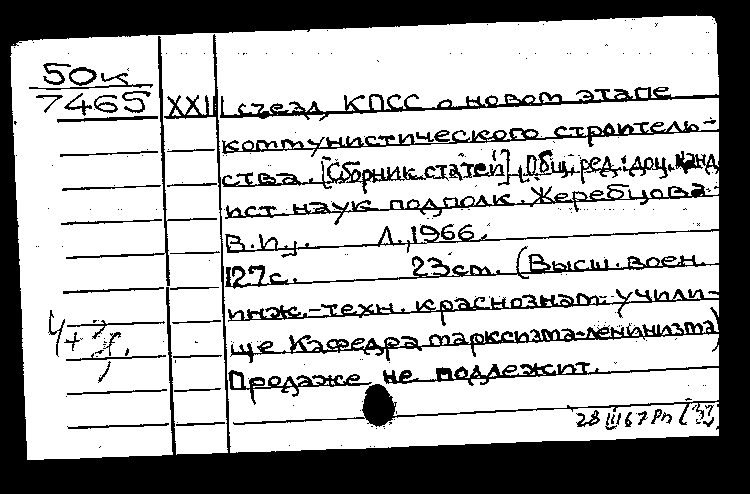 50к
7465
XXIII съезд КПСС о новом этапе
коммунистического строитель-
ства. [Сборник статей]. Общ. ред.: доц. канд.
ист. наук подполк. Жеребцова
В.И., Л., 1966.
127с. 23см. (Высш. воен.
инж.-техн. краснознам. учили-
ще. Кафедра марксизма-ленинизма)
Продаже не подлежит.
28 III 67